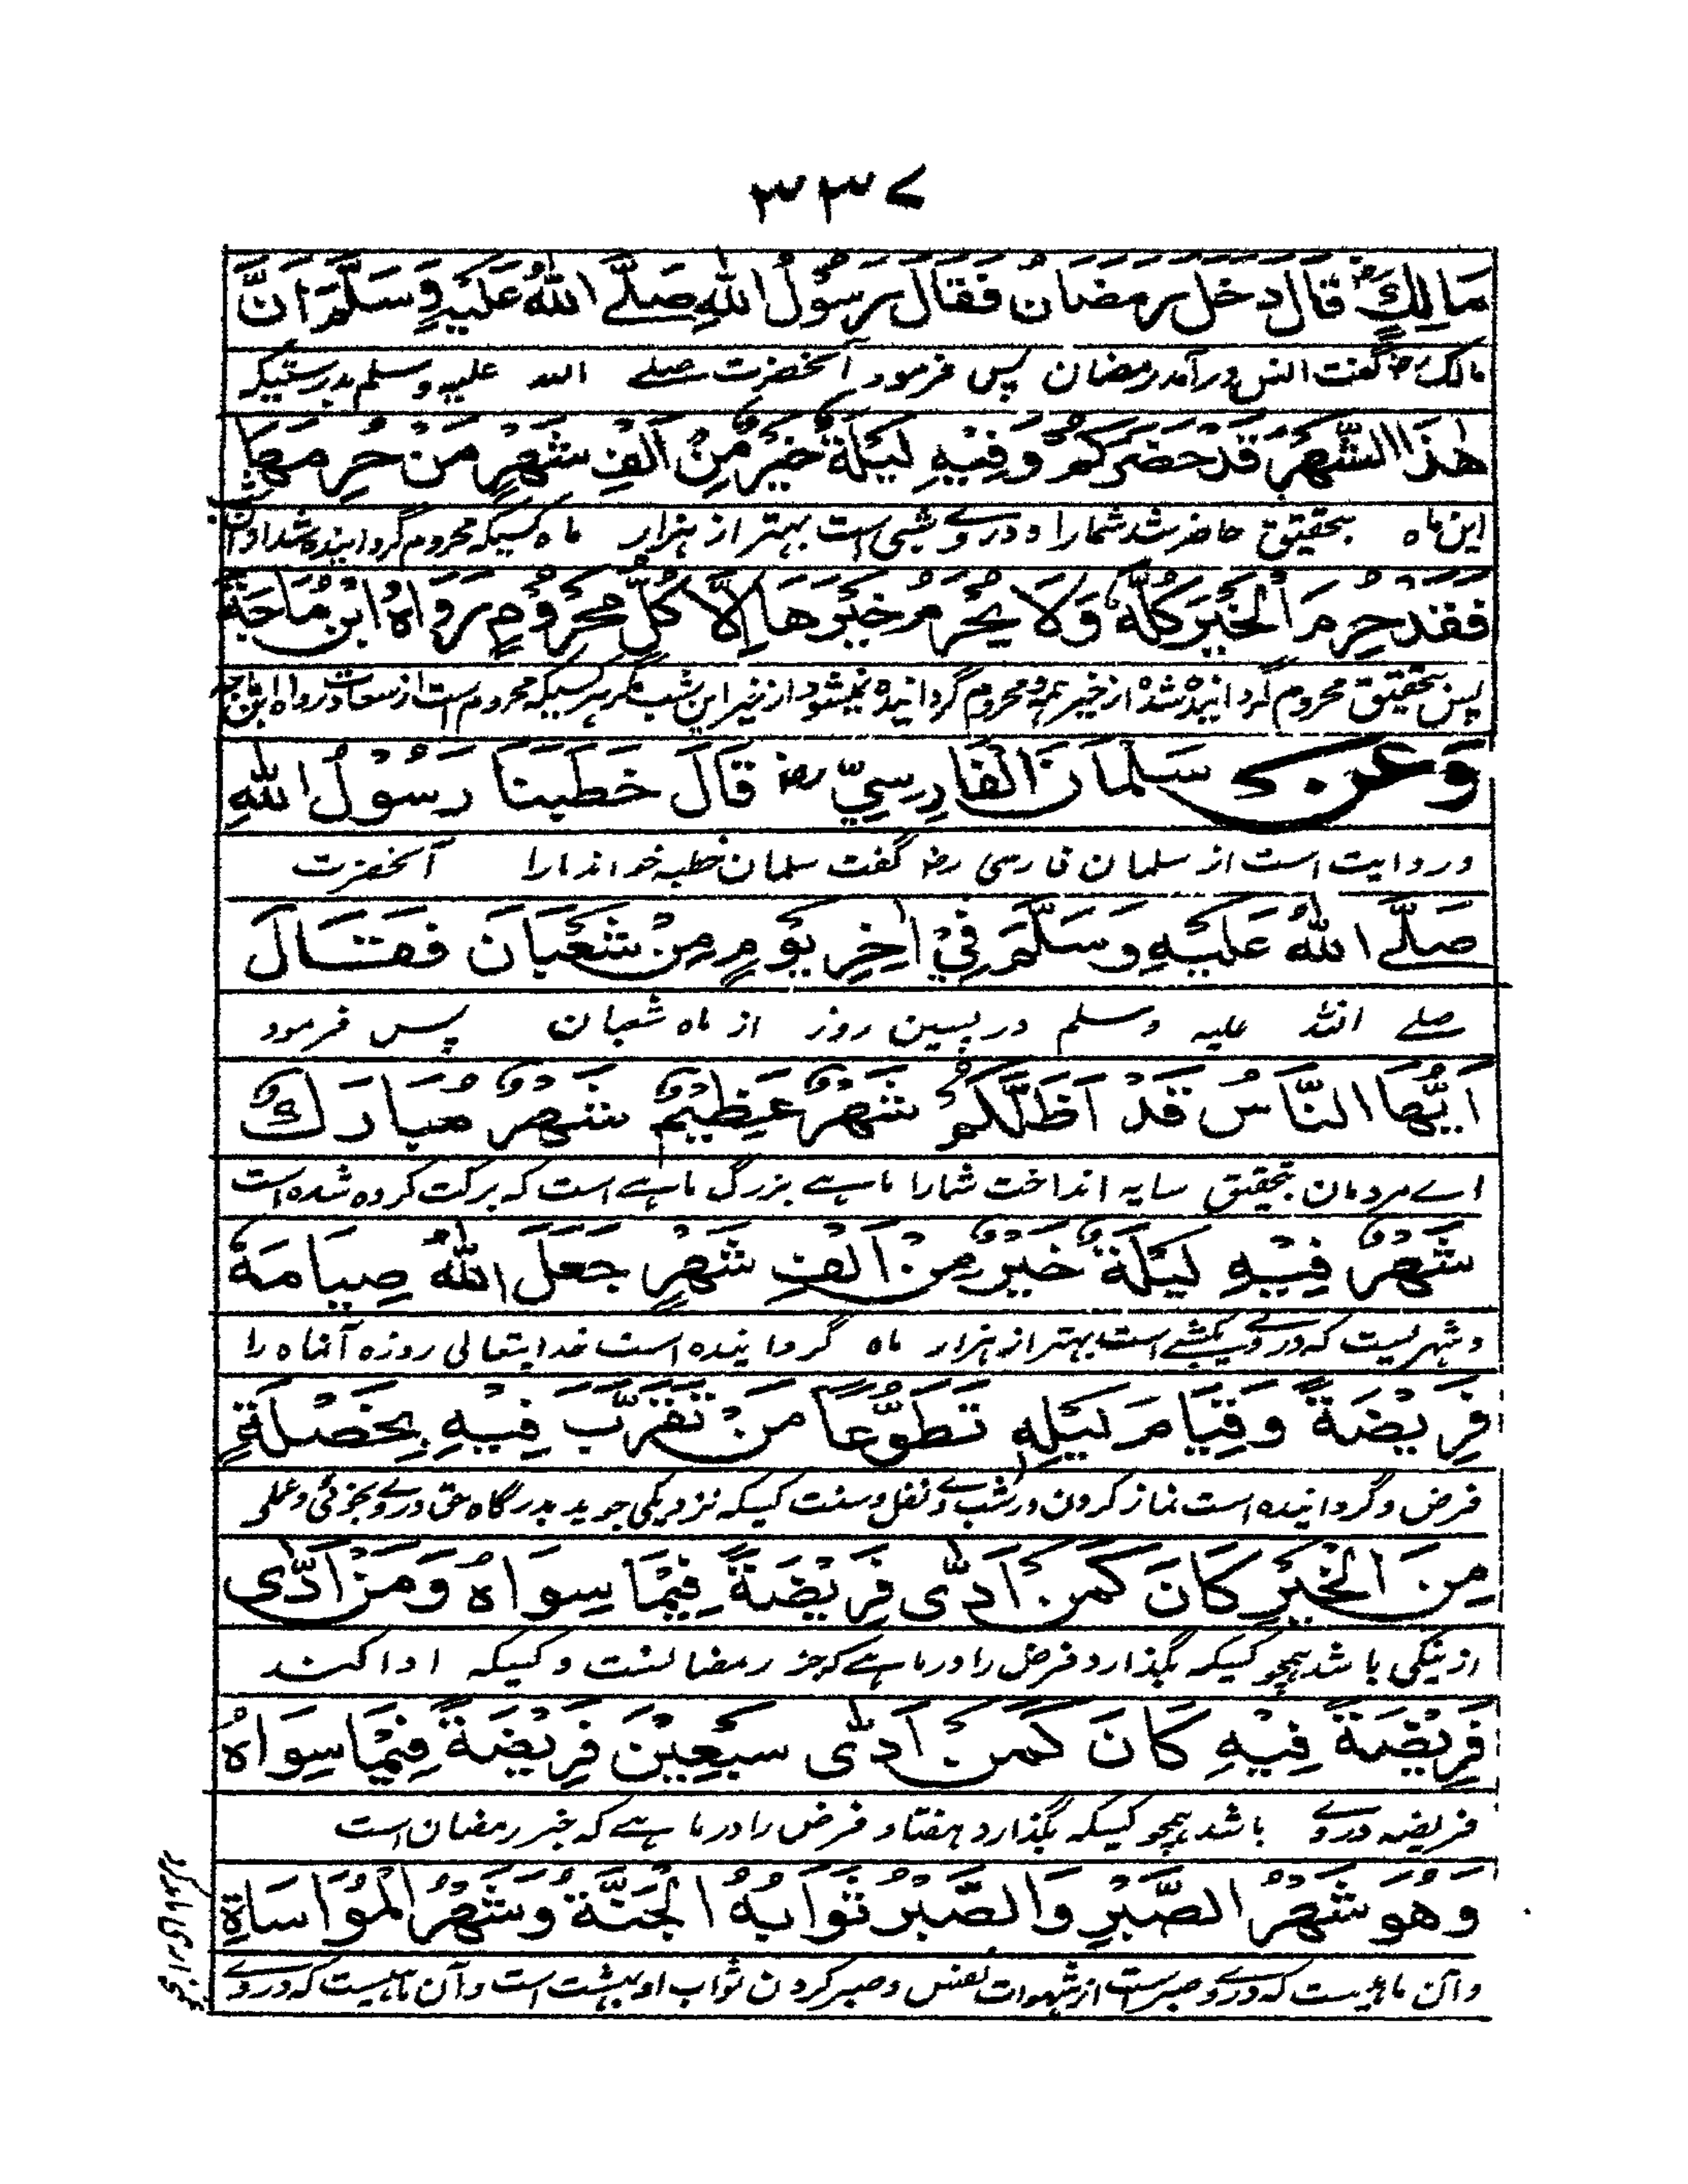 ۳۳۷
مَالِكٍ رض قَالَ دَخَلَ رَمَضَانُ فَقَالَ رَسُوْلُ اللهِ صَلَّے اللهُ عَلَيْهِ وَسَلَّمَ اِنَّ
مالک رض گفت انس در آمد رمضان پس فرمود آنحضرت صلے الله علیه وسلم بدرستیکه
هٰذَا الشَّهْرَ قَدْ حَضَرَكُمْ وَفِيْهِ لَيْلَةٌ خَيْرٌ مِّنْ اَلْفِ شَهْرٍ مَنْ حُرِمَهَا
این ماه بتحقیق حاضر شد شمارا و در وے شبی است بهتر از هزار ماه کسیکه محروم گردانیده شد از آن
فَقَدْ حُرِمَ الْخَيْرَ كُلَّهُ وَلَا يُحْرَمُ خَيْرَهَا اِلَّا كُلُّ مَحْرُوْمٍ رَوَاهُ ابْنُ مَاجَةَ
پس بتحقیق محروم گردانیده شد از خیر همه و محروم گردانیده نمیشود از خیر این شب مگر هر کسیکه محروم است از سعادت رواه ابن ماجه
وَعَنْ سَلْمَانَ الْفَارِسِيِّ رض قَالَ خَطَبَنَا رَسُوْلُ اللهِ
و روایت است از سلمان فارسی رض گفت سلمان خطبه خواند مارا آنحضرت
صَلَّے اللهُ عَلَيْهِ وَسَلَّمَ فِيْ اٰخِرِ يَوْمٍ مِنْ شَعْبَانَ فَقَالَ
صلے الله علیه وسلم در پسین روز از ماه شعبان پس فرمود
اَيُّهَا النَّاسُ قَدْ اَظَلَّكُمْ شَهْرٌ عَظِيْمٌ شَهْرٌ مُبَارَكٌ
اے مردمان بتحقیق سایه انداخت شمارا ماہے بزرگ ماہے است که برکت کرده شده است
شَهْرٌ فِيْهِ لَيْلَةٌ خَيْرٌ مِنْ اَلْفِ شَهْرٍ جَعَلَ اللهُ صِيَامَهُ
و شهریست که در وے یکشبے است بهتر از هزار ماه گردانیده است خدایتعالی روزه آنماه را
فَرِيْضَةً وَقِيَامَ لَيْلِهِ تَطَوُّعًا مَنْ تَقَرَّبَ فِيْهِ بِخَصْلَةٍ
فرض و گردانیده است نماز کردن در شب وے نفل و سنت کسیکه نزدیکی جوید بدرگاه حق در وے بخوئی و عملی
مِنَ الْخَيْرِ كَانَ كَمَنْ اَدّٰى فَرِيْضَةً فِيْمَا سِوَاهُ وَمَنْ اَدّٰى
از نیکی باشد همچو کسیکه بگذارد فرض را در ماہے که جز رمضانست و کسیکه ادا کند
فَرِيْضَةً فِيْهِ كَانَ كَمَنْ اَدّٰى سَبْعِيْنَ فَرِيْضَةً فِيْمَا سِوَاهُ
فریضه در وے باشد همچو کسیکه بگذارد هفتاد فرض را در ماہے که جز رمضان است
وَهُوَ شَهْرُ الصَّبْرِ وَالصَّبْرُ ثَوَابُهُ الْجَنَّةُ وَشَهْرُ الْمُوَاسَاةِ
و آن ماهیست که در وے صبرست از شهوات نفس و صبر کردن ثواب او بهشت است و آن ماهیست که در وے